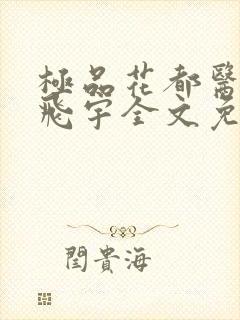 極品花都醫
飛宇全文免
閆貴海